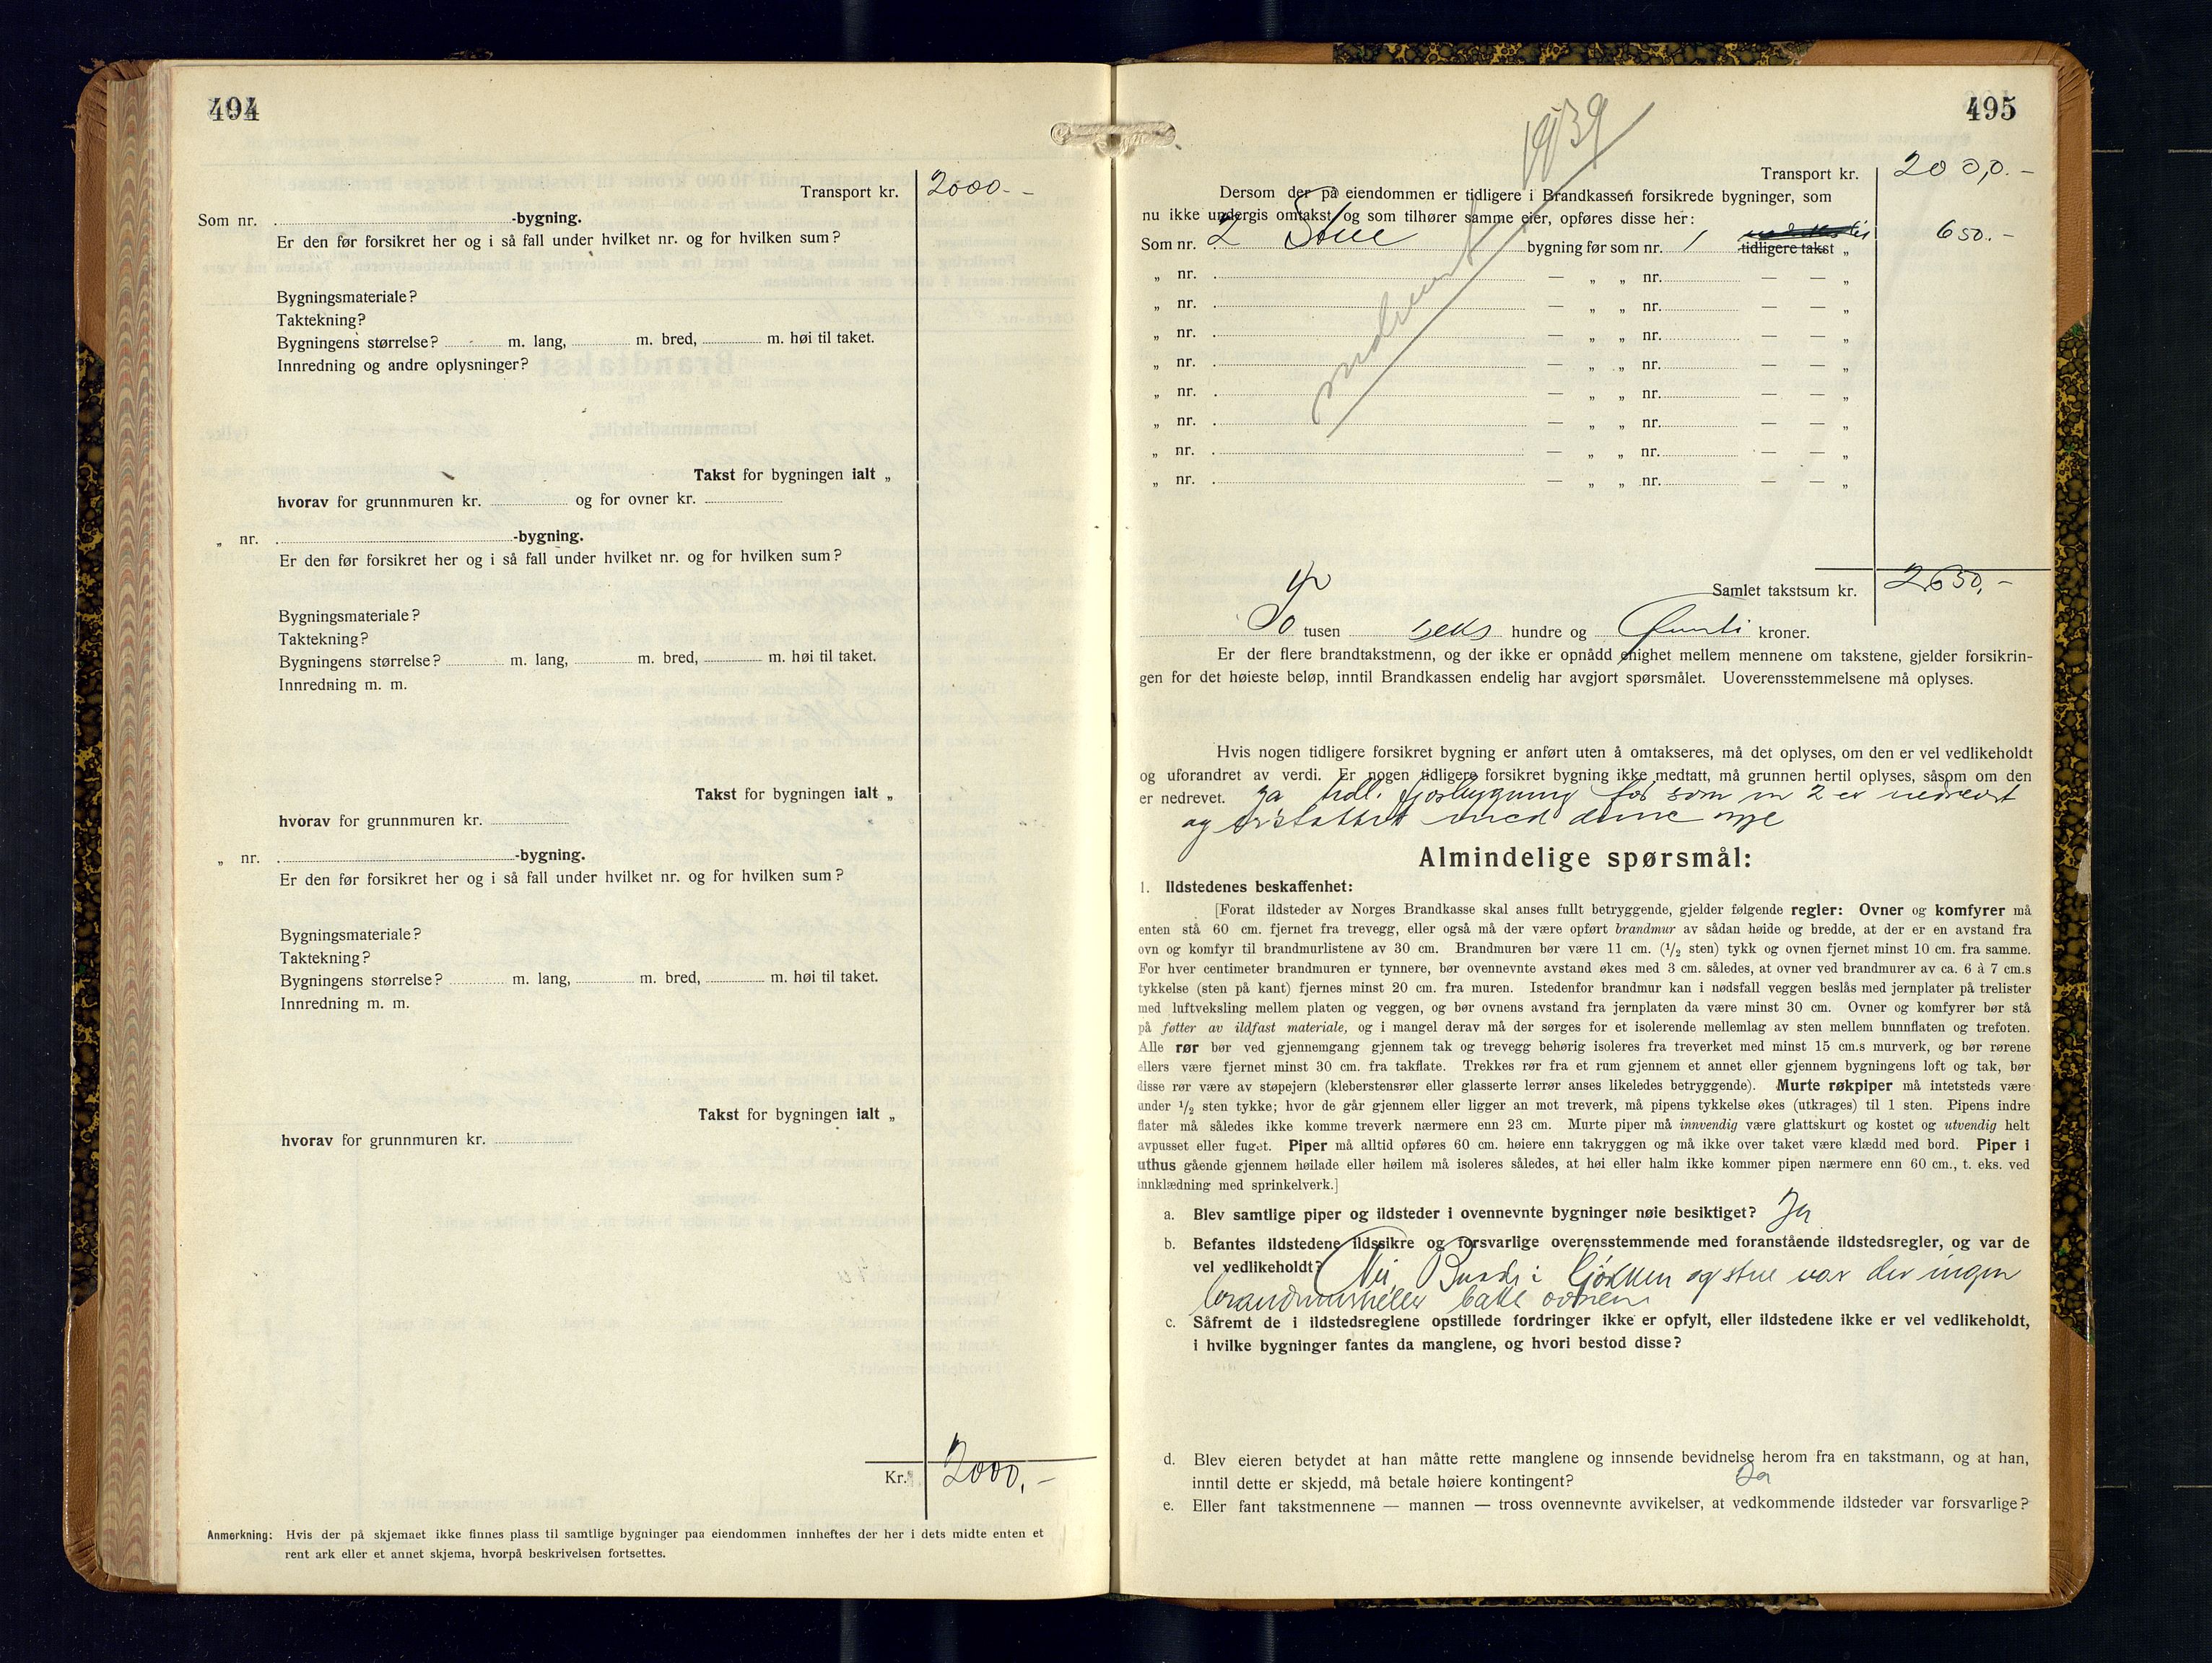 494
Transport kr. 2000.-
Som nr. -bygning.
Er den før forsikret her og i så fall under hvilket nr. og for hvilken sum?
Bygningsmateriale?
Taktekning?
Bygningens størrelse? m. lang, m. bred, m. høi til taket.
Innredning og andre oplysninger?
Takst for bygningen ialt „
hvorav for grunnmuren kr. og for ovner kr.
„ nr. -bygning.
Er den før forsikret her og i så fall under hvilket nr. og for hvilken sum?
Bygningsmateriale?
Taktekning?
Bygningens størrelse? m. lang, m. bred, m. høi til taket.
Innredning m. m.
Takst for bygningen ialt „
hvorav for grunnmuren kr.
„ nr. -bygning.
Er den før forsikret her og i så fall under hvilket nr. og for hvilken sum?
Bygningsmateriale?
Taktekning?
Bygningens størrelse? m. lang, m. bred, m. høi til taket.
Innredning m. m.
Takst for bygningen ialt „
hvorav for grunnmuren kr.
Kr. 2000,-
Anmerkning: Hvis der på skjemaet ikke finnes plass til samtlige bygninger paa eiendommen innheftes der her i dets midte enten et
rent ark eller et annet skjema, hvorpå beskrivelsen fortsettes.
495
1939
Transport kr. 2000,-
Dersom der på eiendommen er tidligere i Brandkassen forsikrede bygninger, som
nu ikke undergis omtakst, og som tilhører samme eier, opføres disse her:
Som nr. 2 Stue bygning før som nr. 1 tidligere takst „ 650.-
„ nr. — „ „ nr. — — „
„ nr. — „ „ nr. — — „
„ nr. — „ „ nr. — — „
„ nr. — „ „ nr. — — „
„ nr. — „ „ nr. — — „
„ nr. — „ „ nr. — — „
„ nr. — „ „ nr. — — „
„ nr. — „ „ nr. — — „
Samlet takstsum kr. 2650,-
To tusen seks hundre og femti kroner.
Er der flere brandtakstmenn, og der ikke er opnådd enighet mellem mennene om takstene, gjelder forsikrin-
gen for det høieste beløp, inntil Brandkassen endelig har avgjort spørsmålet. Uoverensstemmelsene må oplyses.
Hvis nogen tidligere forsikret bygning er anført uten å omtakseres, må det oplyses, om den er vel vedlikeholdt
og uforandret av verdi. Er nogen tidligere forsikret bygning ikke medtatt, må grunnen hertil oplyses, såsom om den
er nedrevet. Ja fjøsbygning før som nr 2 er nedrevet
og erstattet med denne nye
Almindelige spørsmål:
1. Ildstedenes beskaffenhet:
[Forat ildsteder av Norges Brandkasse skal anses fullt betryggende, gjelder følgende regler: Ovner og komfyrer må
enten stå 60 cm. fjernet fra trevegg, eller også må der være opført brandmur av sådan høide og bredde, at der er en avstand fra
ovn og komfyr til brandmurlistene av 30 cm. Brandmuren bør være 11 cm. (1/2 sten) tykk og ovnen fjernet minst 10 cm. fra samme.
For hver centimeter brandmuren er tynnere, bør ovennevnte avstand økes med 3 cm. således, at ovner ved brandmurer av ca. 6 à 7 cm.s
tykkelse (sten på kant) fjernes minst 20 cm. fra muren. Istedenfor brandmur kan i nødsfall veggen beslås med jernplater på trelister
med luftveksling mellem platen og veggen, og bør ovnens avstand fra jernplaten da være minst 30 cm. Ovner og komfyrer bør stå
på føtter av ildfast materiale, og i mangel derav må der sørges for et isolerende mellemlag av sten mellem bunnflaten og trefoten.
Alle rør bør ved gjennemgang gjennem tak og trevegg behørig isoleres fra treverket med minst 15 cm.s murverk, og bør rørene
ellers være fjernet minst 30 cm. fra takflate. Trekkes rør fra et rum gjennem et annet eller gjennem bygningens loft og tak, bør
disse rør være av støpejern (kleberstensrør eller glasserte lerrør anses likeledes betryggende). Murte røkpiper må intetsteds være
under 1/2 sten tykke; hvor de går gjennem eller ligger an mot treverk, må pipens tykkelse økes (utkrages) til 1 sten. Pipens indre
flater må således ikke komme treverk nærmere enn 23 cm. Murte piper må innvendig være glattskurt og kostet og utvendig helt
avpusset eller fuget. Piper må alltid opføres 60 cm. høiere enn takryggen og må ikke over taket være klædd med bord. Piper i
uthus gående gjennem høilade eller høilem må isoleres således, at høi eller halm ikke kommer pipen nærmere enn 60 cm., t. eks. ved
innklædning med sprinkelverk.]
a. Blev samtlige piper og ildsteder i ovennevnte bygninger nøie besiktiget? Ja
b. Befantes ildstedene ildssikre og forsvarlige overensstemmende med foranstående ildstedsregler, og var de
vel vedlikeholdt? Nei, Baade i Kjøkken og stue var der ingen
c. Såfremt de i ildstedsreglene opstillede fordringer ikke er opfylt, eller ildstedene ikke er vel vedlikeholdt,
i hvilke bygninger fantes da manglene, og hvori bestod disse?
d. Blev eieren betydet at han måtte rette manglene og innsende bevidnelse herom fra en takstmann, og at han,
inntil dette er skjedd, må betale høiere kontingent? Ja
e. Eller fant takstmennene — mannen — tross ovennevnte avvikelser, at vedkommende ildsteder var forsvarlige?